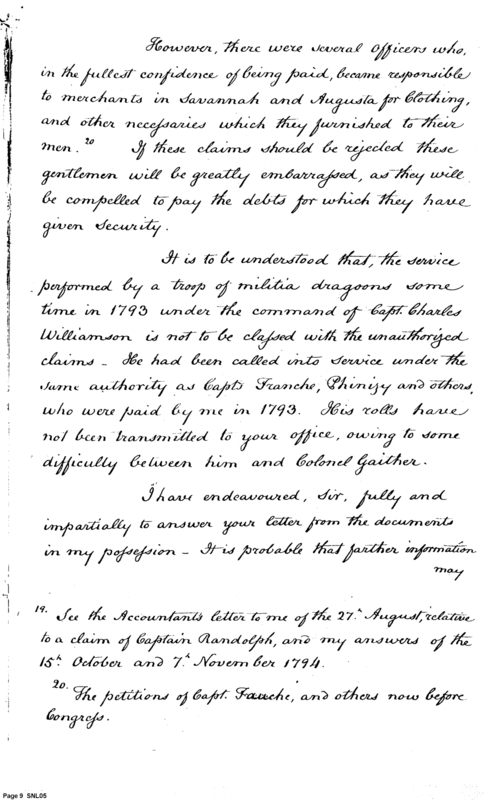 However, there were several officers who,
in the fullest confidence of being paid, became responsible
to merchants in Savannah and Augusta for Clothing,
and other necessaries which they furnished to their
men.20 If these claims should be rejected these
gentlemen will be greatly embarrassed, as they will
be compelled to pay the debts for which they have
given Security.
It is to be understood that, the service
performed by a troop of militia dragoons some
time in 1793 under the command of Capt. Charles
Williamson is not to be classed with the unauthorized
claims – He had been called into service under the
same authority as Capts Franche, Phinizy and others,
who were paid by me in 1793. His rolls have
not been transmitted to your office, owing to some
difficulty between him and Colonel Gaither.
I have endeavoured, Sir, fully and
impartially to answer your letter from the documents
in my possession – It is probable that farther information
may
19. See the Accountants letter to me of the 27th August, relative
to a claim of Captain Randolph, and my answers of the
15th October and 7th November 1794.
20. The petitions of Capt. Fauche, and others now before
Congress.
Page 9 SNL05